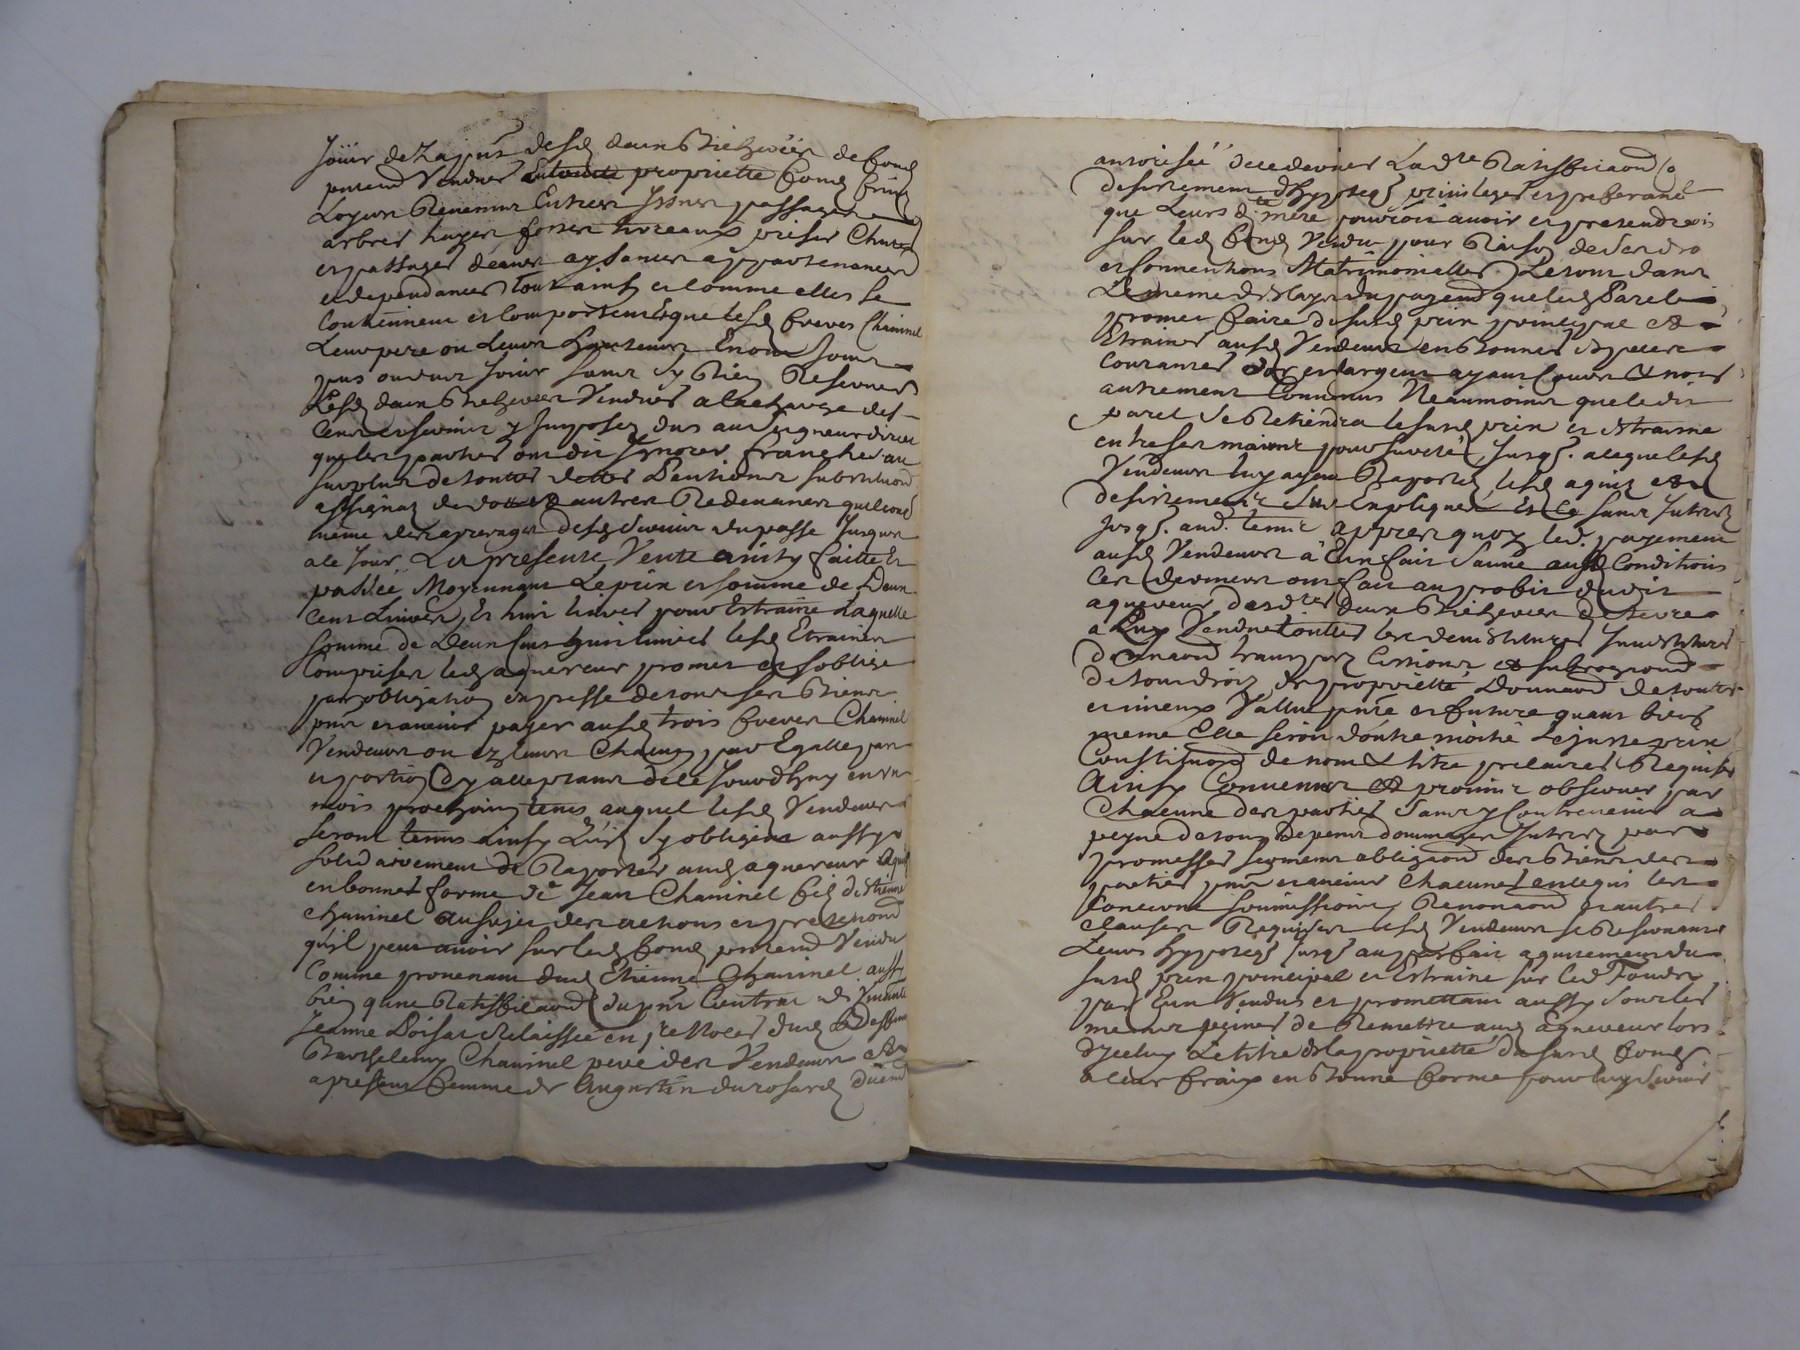 Joüir de Lapnt desd deux Bicherées de fond
pntement Vendues propriette fond fruits
Loyers Revenus Entrées Issues passages
arbres hayes fosses tureaux prises Chutes
et passages deaux aysances appartenances
et dependances tout ainsy et comme elles se
Contiennent et Comportent et que lesd freres Chaninel
Leur pere ou Leurs hauteurs En ont Jouy
pus ou deu Jouir sans y Rien Reserver
Lesd deux Bicherées Vendues a la charge des
Cens et servis y Imposés dus au seigneur direct
que les parties ont dit Ignorer franches au
surplus de touttes dettes Pentions substituons
assignaz de autres Redevances quelconq
même des arrerages desd servis du passe Jusques
a ce Jour. La presente Vente ainsy faitte Et
passée Moyennant Le prix et somme de Deux
Cent Livres Et huit livres pour Estraine Laquelle
somme de Deux Cens huit livres lesd Etraines
Comprises led aquereur promet et soblige
par obligation expresse de tous ses Biens
pnts et avenir payer ausd trois freres Chaninel
Vendeurs ou ez leurs Chacun par Egalle part
et portion Cy acceptants de ce Jourdhuy en un
mois prochain tems auquel lesd Vendeurs
seront tenus ainsy quils sy obligent aussy
solidairement de Raporter aud aquereur
en bonnes forme de Jean Chaninel fils dEtienne
Chaninel au sujet des actions et pretentions
quil peut avoir sur led fond pntement Vendu
Comme provenant dud Etienne Chaninel aussy
bien qune Ratiffication du pnt Contrat de
Jeanne Poisat Relaissée en pre Noces dud Deffunt
Barthelemy Chaninel pere des Vendeurs et
a present femme de Augustin Durosard
autorisée La dte Ratiffication
desistement dhypoteq privileges et preferance
que Leurs dte mere pourroit avoir et pretendre
sur led fond Vendu pour Raison de ses dro
et Conventions Matrimonielles. Le tout dans
Le meme delay du payement que led Paret
promet faire dusurd prix principal et
Etraines ausd Vendeurs en Bonnes Especes
Courantes dor et dargent ayant Cours et non
autrement Convenus Neanmoins que ledit
paret se Retiendra le surd prix et Etraine
entre ses mains pour sureté Jusq. a ce que lesd
Vendeurs luy ayent Raporté lesd aquis et
desistement sus Expliques Et Ce sans Interez
Jusq. aud. tems appres quoy led. payement
ausd Vendeurs a Eux fait Sauve ausd Conditions
Ces devoirs ont fait au profit dudit
aquereur desdtes deux Bicherées de terre
a Luy Vendues touttes les devestitures Investitures
donnaon transport Cessions et subrogaons
de tous droits de proprietté Donnaon de toutte
et mieux Vallue pnte et future quand bien
meme Elle seroit doutre moitié de juste prix
Constituon de nom et titre precaires Requises
Ainsy Convenu et promis observer par
Chacune des parties sans y Contrevenir a
peyne de tous depens dommages Interez par
promesses serment obligaon des Biens des
parties pnts et avenir Chacune en ce qui les
Concerne soumissions Renonaons et autres
Clauses Requises lesd Vendeurs se Reservant
Leurs hypoteqs Jusq au parfait aquitement du
surd prix principal et Estraine sur led Fonds
par Eux Vendus et promettant aussy sous les
memes peines de Remettre aud aquereur lors
dIceluy Le titre de la proprietté du surd fond
a leur fraix en Bonne forme pour luy servir